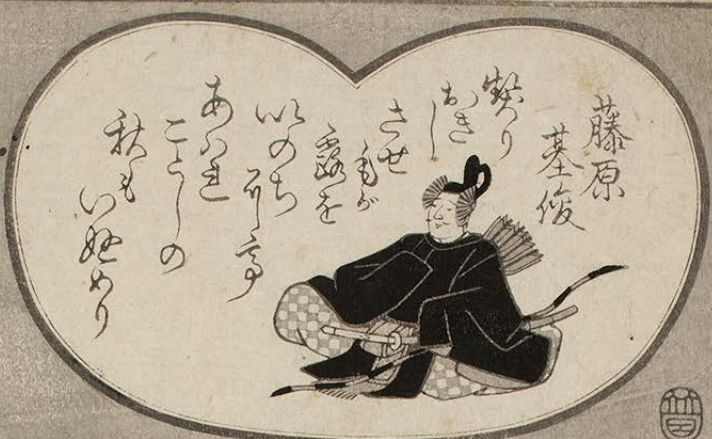 藤原
基俊
契り
おき
し
させ
もが
露を
いのち
にて
あはれ
ことしの
秋も
いぬめり